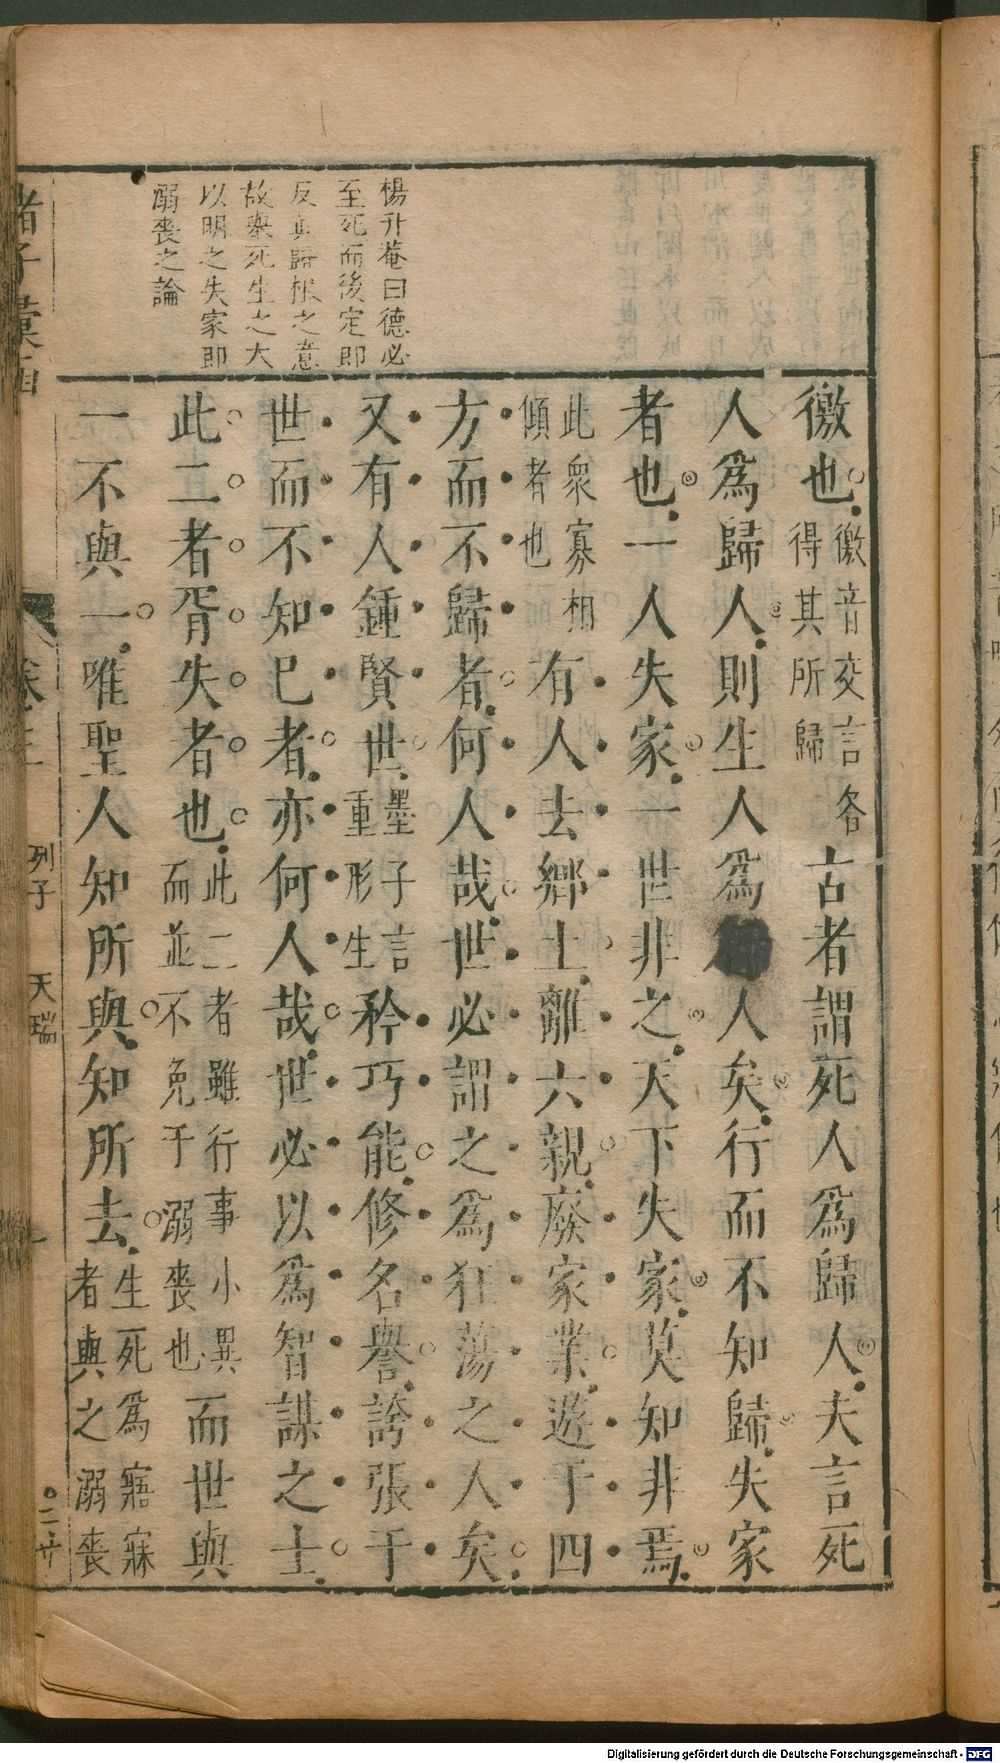 楊升菴曰德必
至死而後定即
反真歸根之意
故舉死生之大
以明之失家即
溺喪之論
徼也徼音交言各得其所歸古者謂死人爲歸人夫言死
人爲歸人則生人爲人矣行而不知歸失家
者也一人失家一世非之天下失家莫知非焉
此衆寡相傾者也有人去鄉土離六親廢家業遊于四
方而不歸者何人哉世必謂之爲狂蕩之人矣
又有人鍾賢世墨子言重形生矜巧能修名譽誇張于
世而不知已者亦何人哉世必以爲智謀之士
此二者胥失者也此二者雖行事小異而並不免于溺喪也而世與
一不與一唯聖人知所與知所去生死爲寤寐者與之溺喪
諸子彙函
卷三
列子
天瑞
二廿
Digitalisierung gefördert durch die Deutsche Forschungsgemeinschaft - DFG